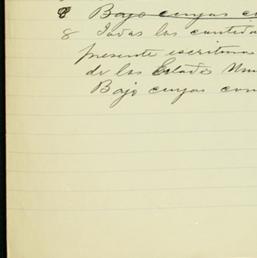 8 Bajo cuyas co
8 Todas las cantida
presente escritura
de los Estados Uni
Bajo cuyas con